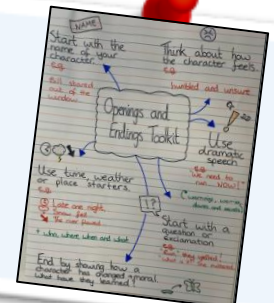 NAME
Start with the
name of your
character.
e.g.
Bill stared
out of the
window.
Think about how
the character feels.
e.g.
humbled and unsure
Openings and
Endings Toolkit
Use
dramatic
speech.
e.g.
"We need to
run... NOW!"
Use time, weather
or place starters.
e.g.
Late one night,
Snow fell
The river flowed
+ who, where when and what
!?
Start with a
question or
exclamation
e.g.
End by showing how a
character has changed
what have they learned?
moral